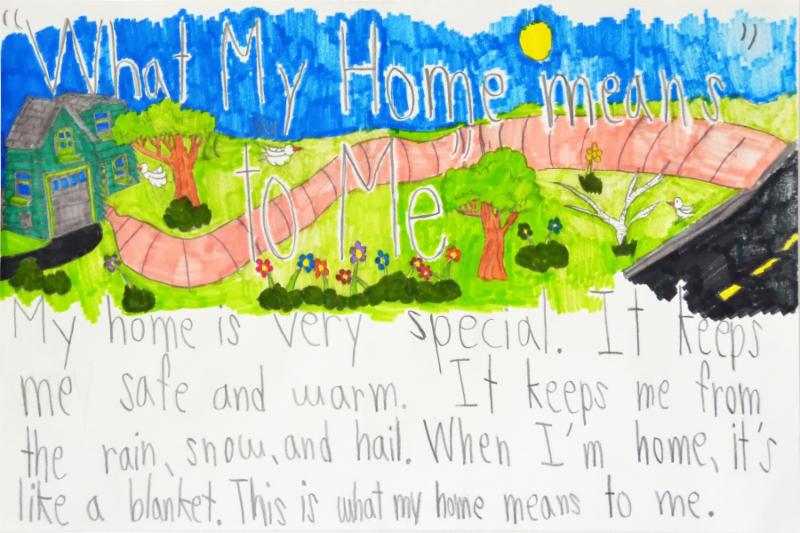 "What My Home means"
to Me"
My home is very special. It keeps
me safe and warm. It keeps me from
the rain, snow, and hail. When I'm home, it's
like a blanket. This is what my home means to me.